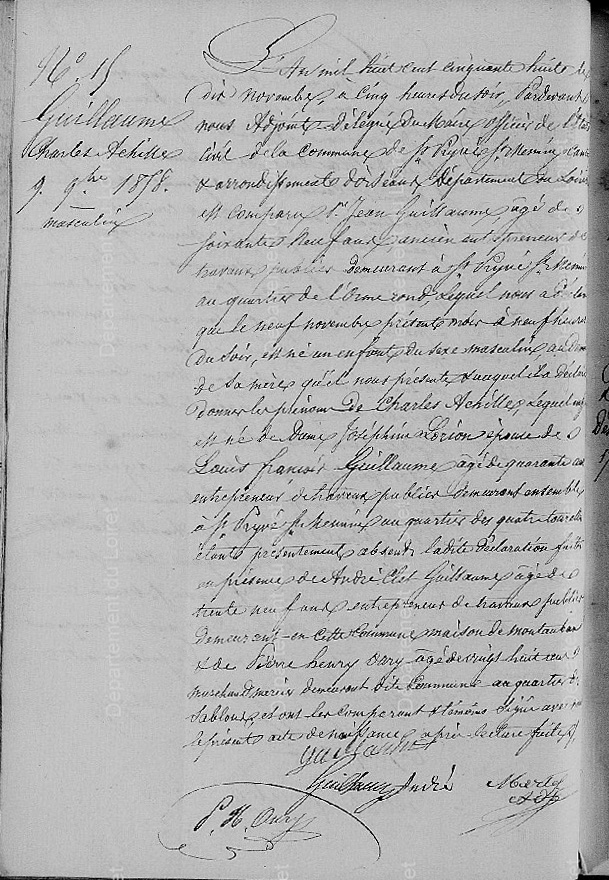 N.º 15
Guillaume
Charles Achille
9 9bre 1858.
masculin
L'An mil huit cent cinquante huit le
dix novembre, a cinq heures du soir, Pardevant
nous Adjoint délégué du Maire officier de l'Etat
civil de la Commune de St Pryvé St Mesmin, canton
& arrondissement d'orléans, Département du Loiret
est comparu Sr Jean Guillaume, agé de
soixante neuf ans, ancien entrepreneur de
travaux publics demeurant à St Pryvé St Mesmin
au quartier de l'Orme rond, Lequel nous a déclaré
que le neuf novembre présent mois à neuf heures
du soir, est né un enfant du sexe masculin, au
de sa mère qu'il nous présente & auquel il a déclaré
donner les prénoms de Charles Achille, Lequel
est né de Dame Joséphine Lorion épouse de
Louis françois Guillaume agé de quarante ans
entrepreneur de travaux publics demeurant ensemble
à St Pryvé St Mesmin au quartier des quatre
étant présentement absent, ladite déclaration faite
en présence de André Clet Guillaume agé de
trente neuf ans entrepreneur de travaux publics
demeurant en cette commune maison de montauban
& de Pierre henry Oury agé de vingt huit ans
marchand mercier demeurant dite Commune au quartier des
Sablons, et ont les comparant & témoins signé avec nous
le présent acte de naissance après lecture faite
Guillaume
Guillaume André
P. H. Oury
Département du Loiret
Département du Loiret
Département du Loiret
Département du Loiret